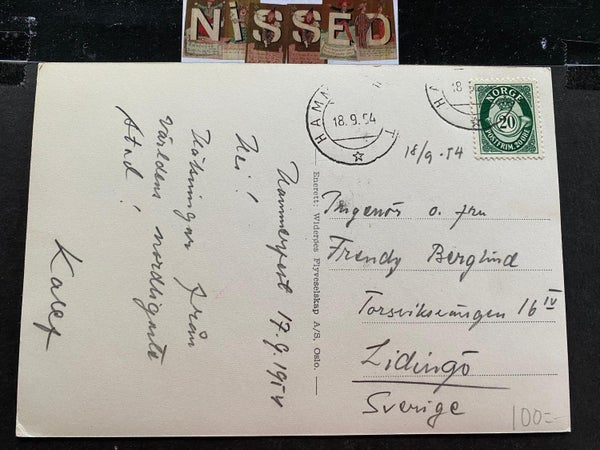 NiSSED
HAMM T
18.9.54
HA
18.
NORGE
20
POSTFRIM. 20 ØRE
18/9-54
Hammerfest 17.9.1954
Hei!
Hälsningar från
världens nordligaste
stad!
Enerett: Widerøes Flyveselskap A/S. Oslo.
Ingenör o. fru
Frendy Berglund
Torsviksvängen 16 IV
Lidingö
Sverige
100:-